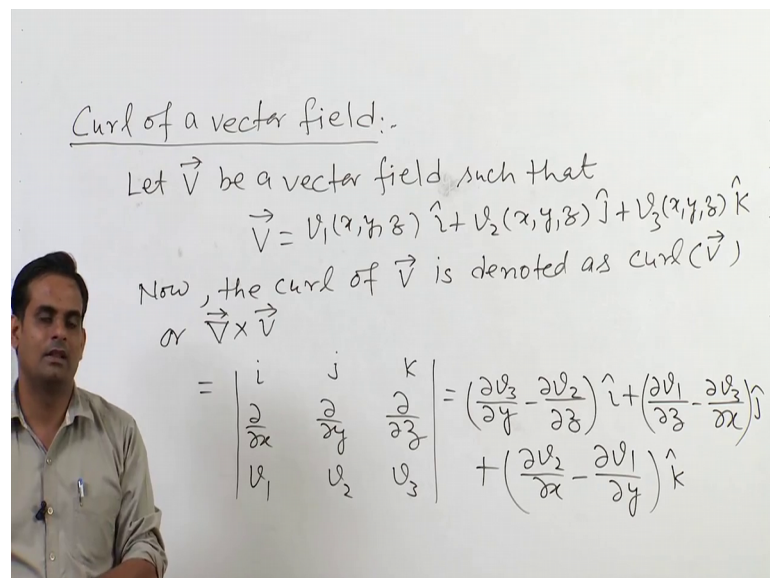 Curl of a vector field:-
Let V⃗ be a vector field such that
V⃗ = v₁(x,y,z) î + v₂(x,y,z) ĵ + v₃(x,y,z) k̂
Now, the curl of V⃗ is denoted as curl(V⃗)
or ∇⃗×V⃗
= | i j k | = (∂v₃/∂y - ∂v₂/∂z) î + (∂v₁/∂z - ∂v₃/∂x) ĵ
| ∂/∂x ∂/∂y ∂/∂z |
| v₁ v₂ v₃ | + (∂v₂/∂x - ∂v₁/∂y) k̂